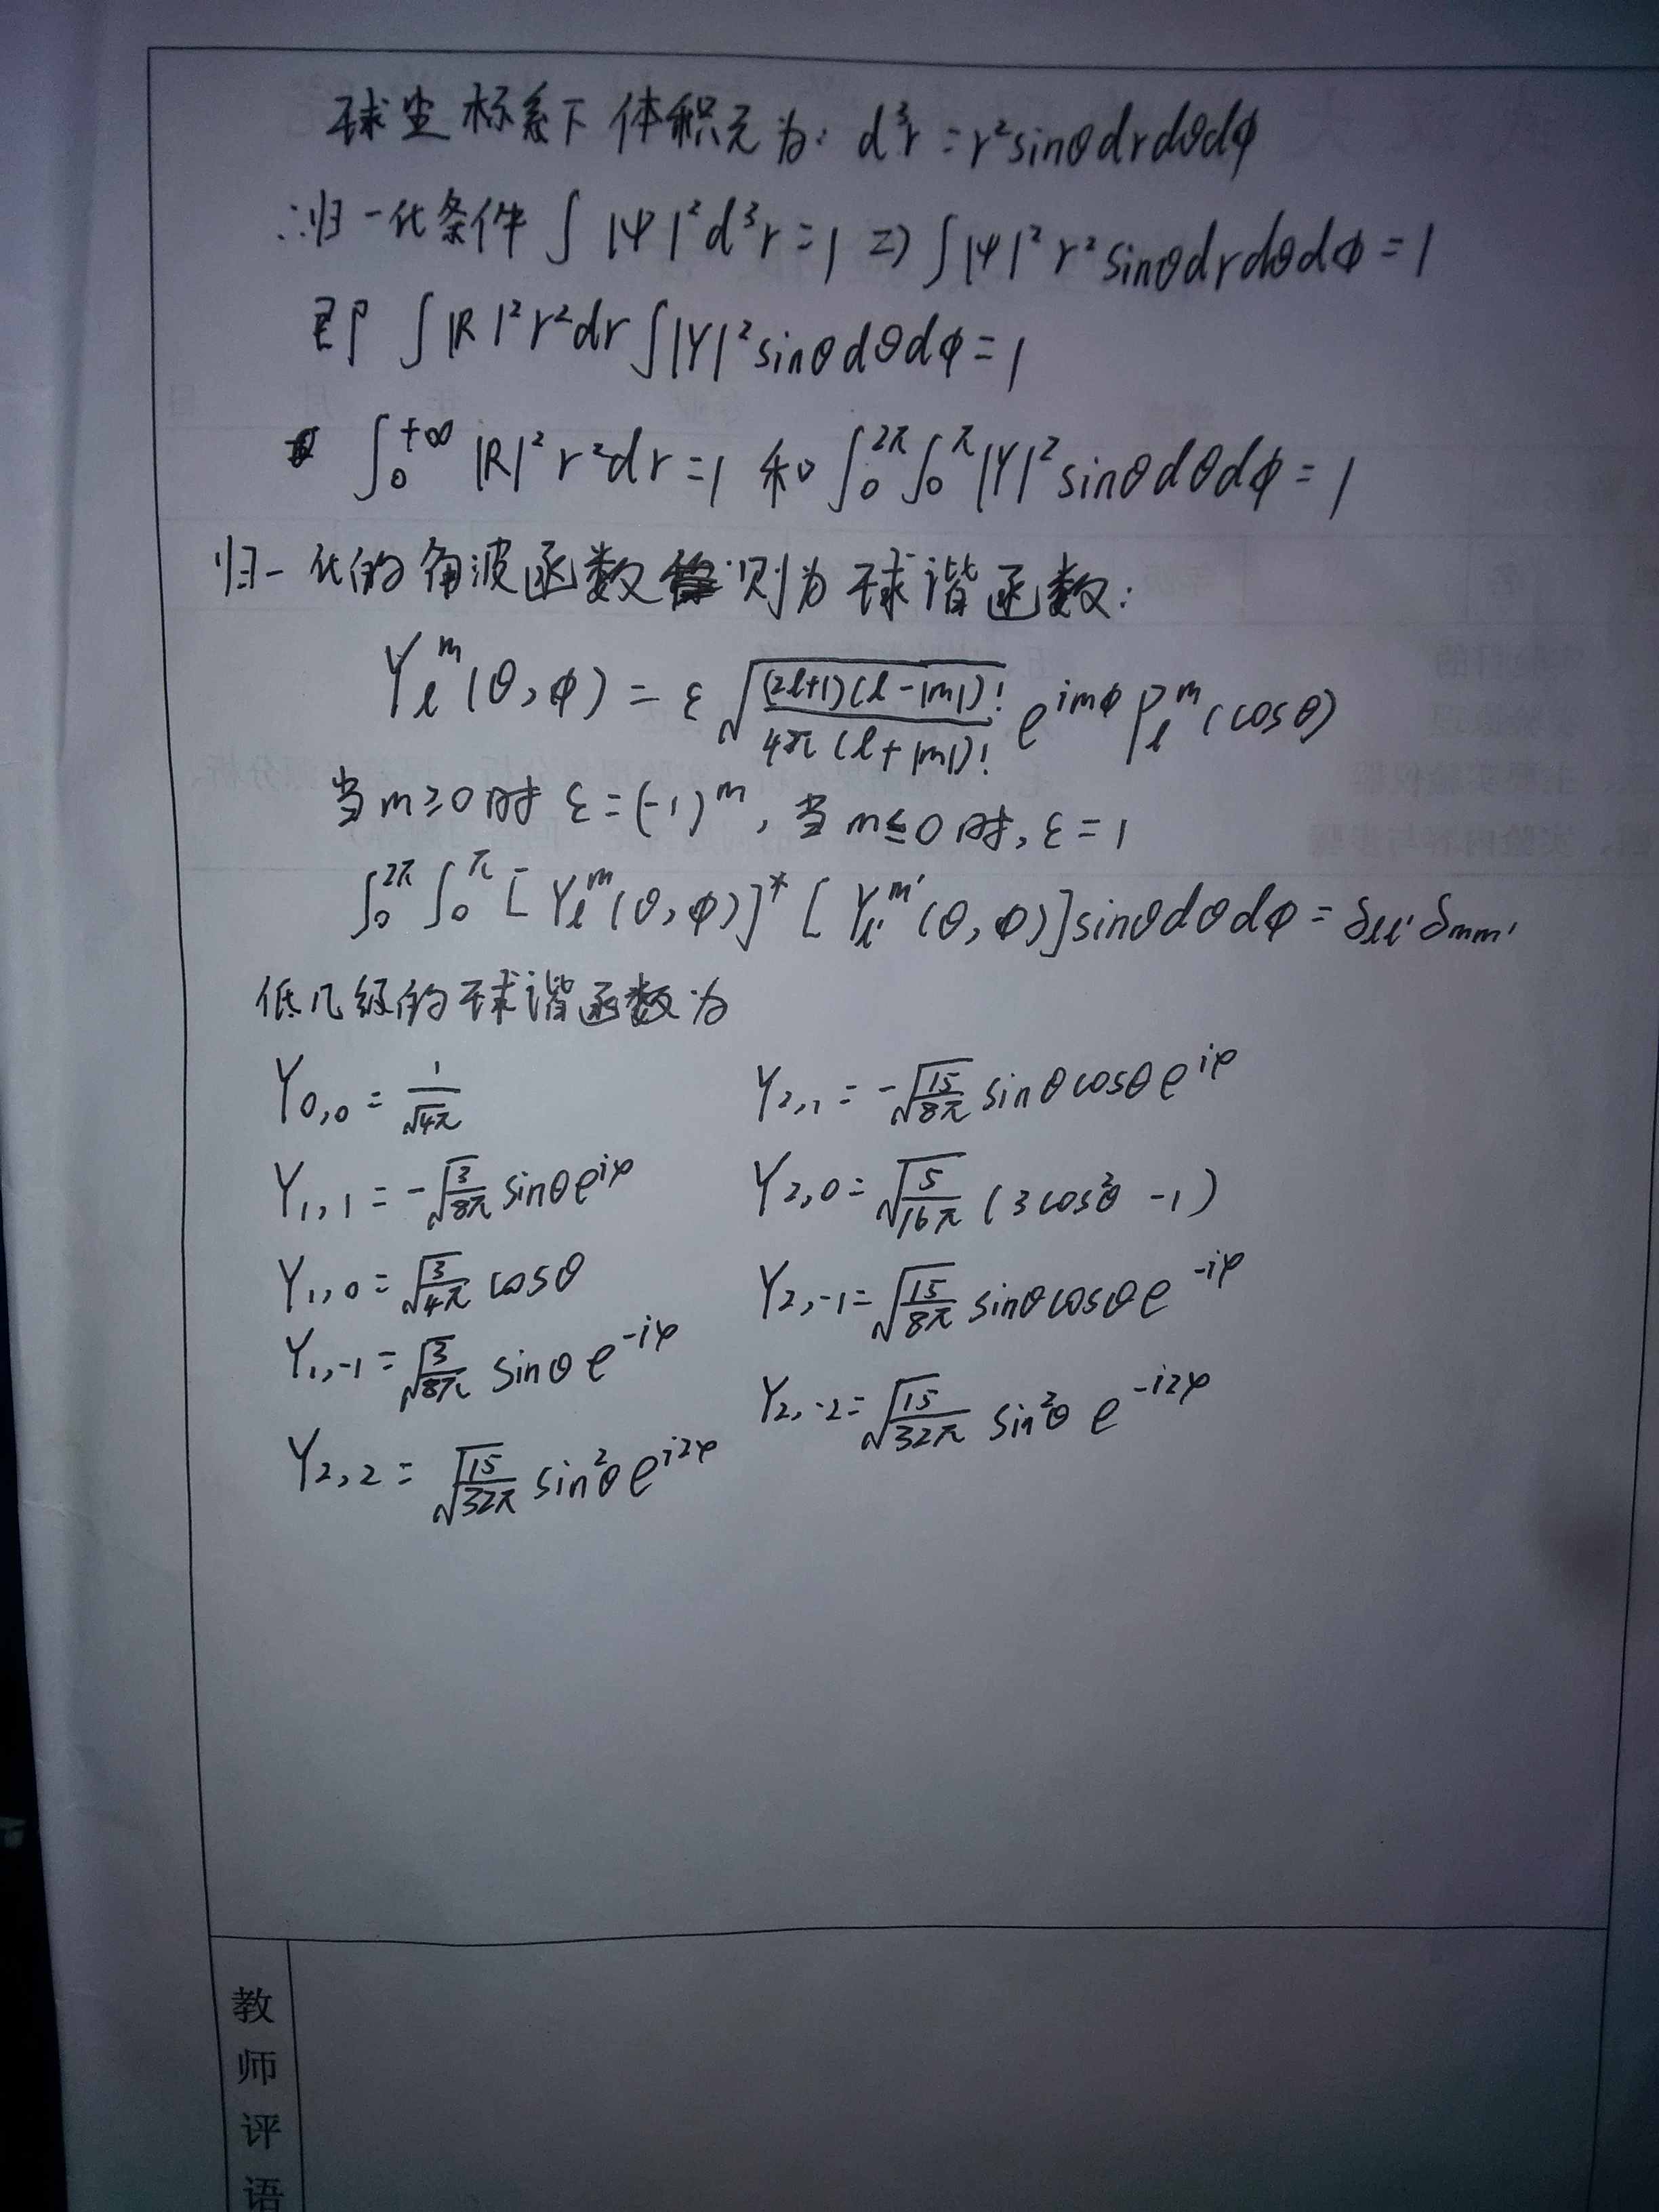 球坐标系下体积元为: d³r = r²sinθdrdθdφ
∴归一化条件 ∫|Ψ|²d³r=1 ⇒ ∫|Ψ|²r²sinθdrdθdφ=1
即 ∫|R|²r²dr∫|Y|²sinθdθdφ=1
∫₀^{+∞}|R|²r²dr=1 和 ∫₀^{2π}∫₀^{π}|Y|²sinθdθdφ=1
归一化的角波函数则为球谐函数:
Y_l^m(θ,φ) = ε√((2l+1)(l-|m|)!/4π(l+|m|)!) e^{imφ} P_l^m(cosθ)
当m≥0时 ε=(-1)^m, 当m≤0时, ε=1
∫₀^{2π}∫₀^{π}[Y_l^m(θ,φ)]*[Y_{l'}^{m'}(θ,φ)]sinθdθdφ=δ_{ll'}δ_{mm'}
低几级的球谐函数为
Y_{0,0} = 1/√4π
Y_{1,1} = -√(3/8π) sinθe^{iφ}
Y_{1,0} = √(3/4π) cosθ
Y_{1,-1} = √(3/8π) sinθe^{-iφ}
Y_{2,2} = √(15/32π) sin²θe^{i2φ}
Y_{2,1} = -√(15/8π) sinθcosθe^{iφ}
Y_{2,0} = √(5/16π) (3cos²θ-1)
Y_{2,-1} = √(15/8π) sinθcosθe^{-iφ}
Y_{2,-2} = √(15/32π) sin²θe^{-i2φ}
教
师
评
语